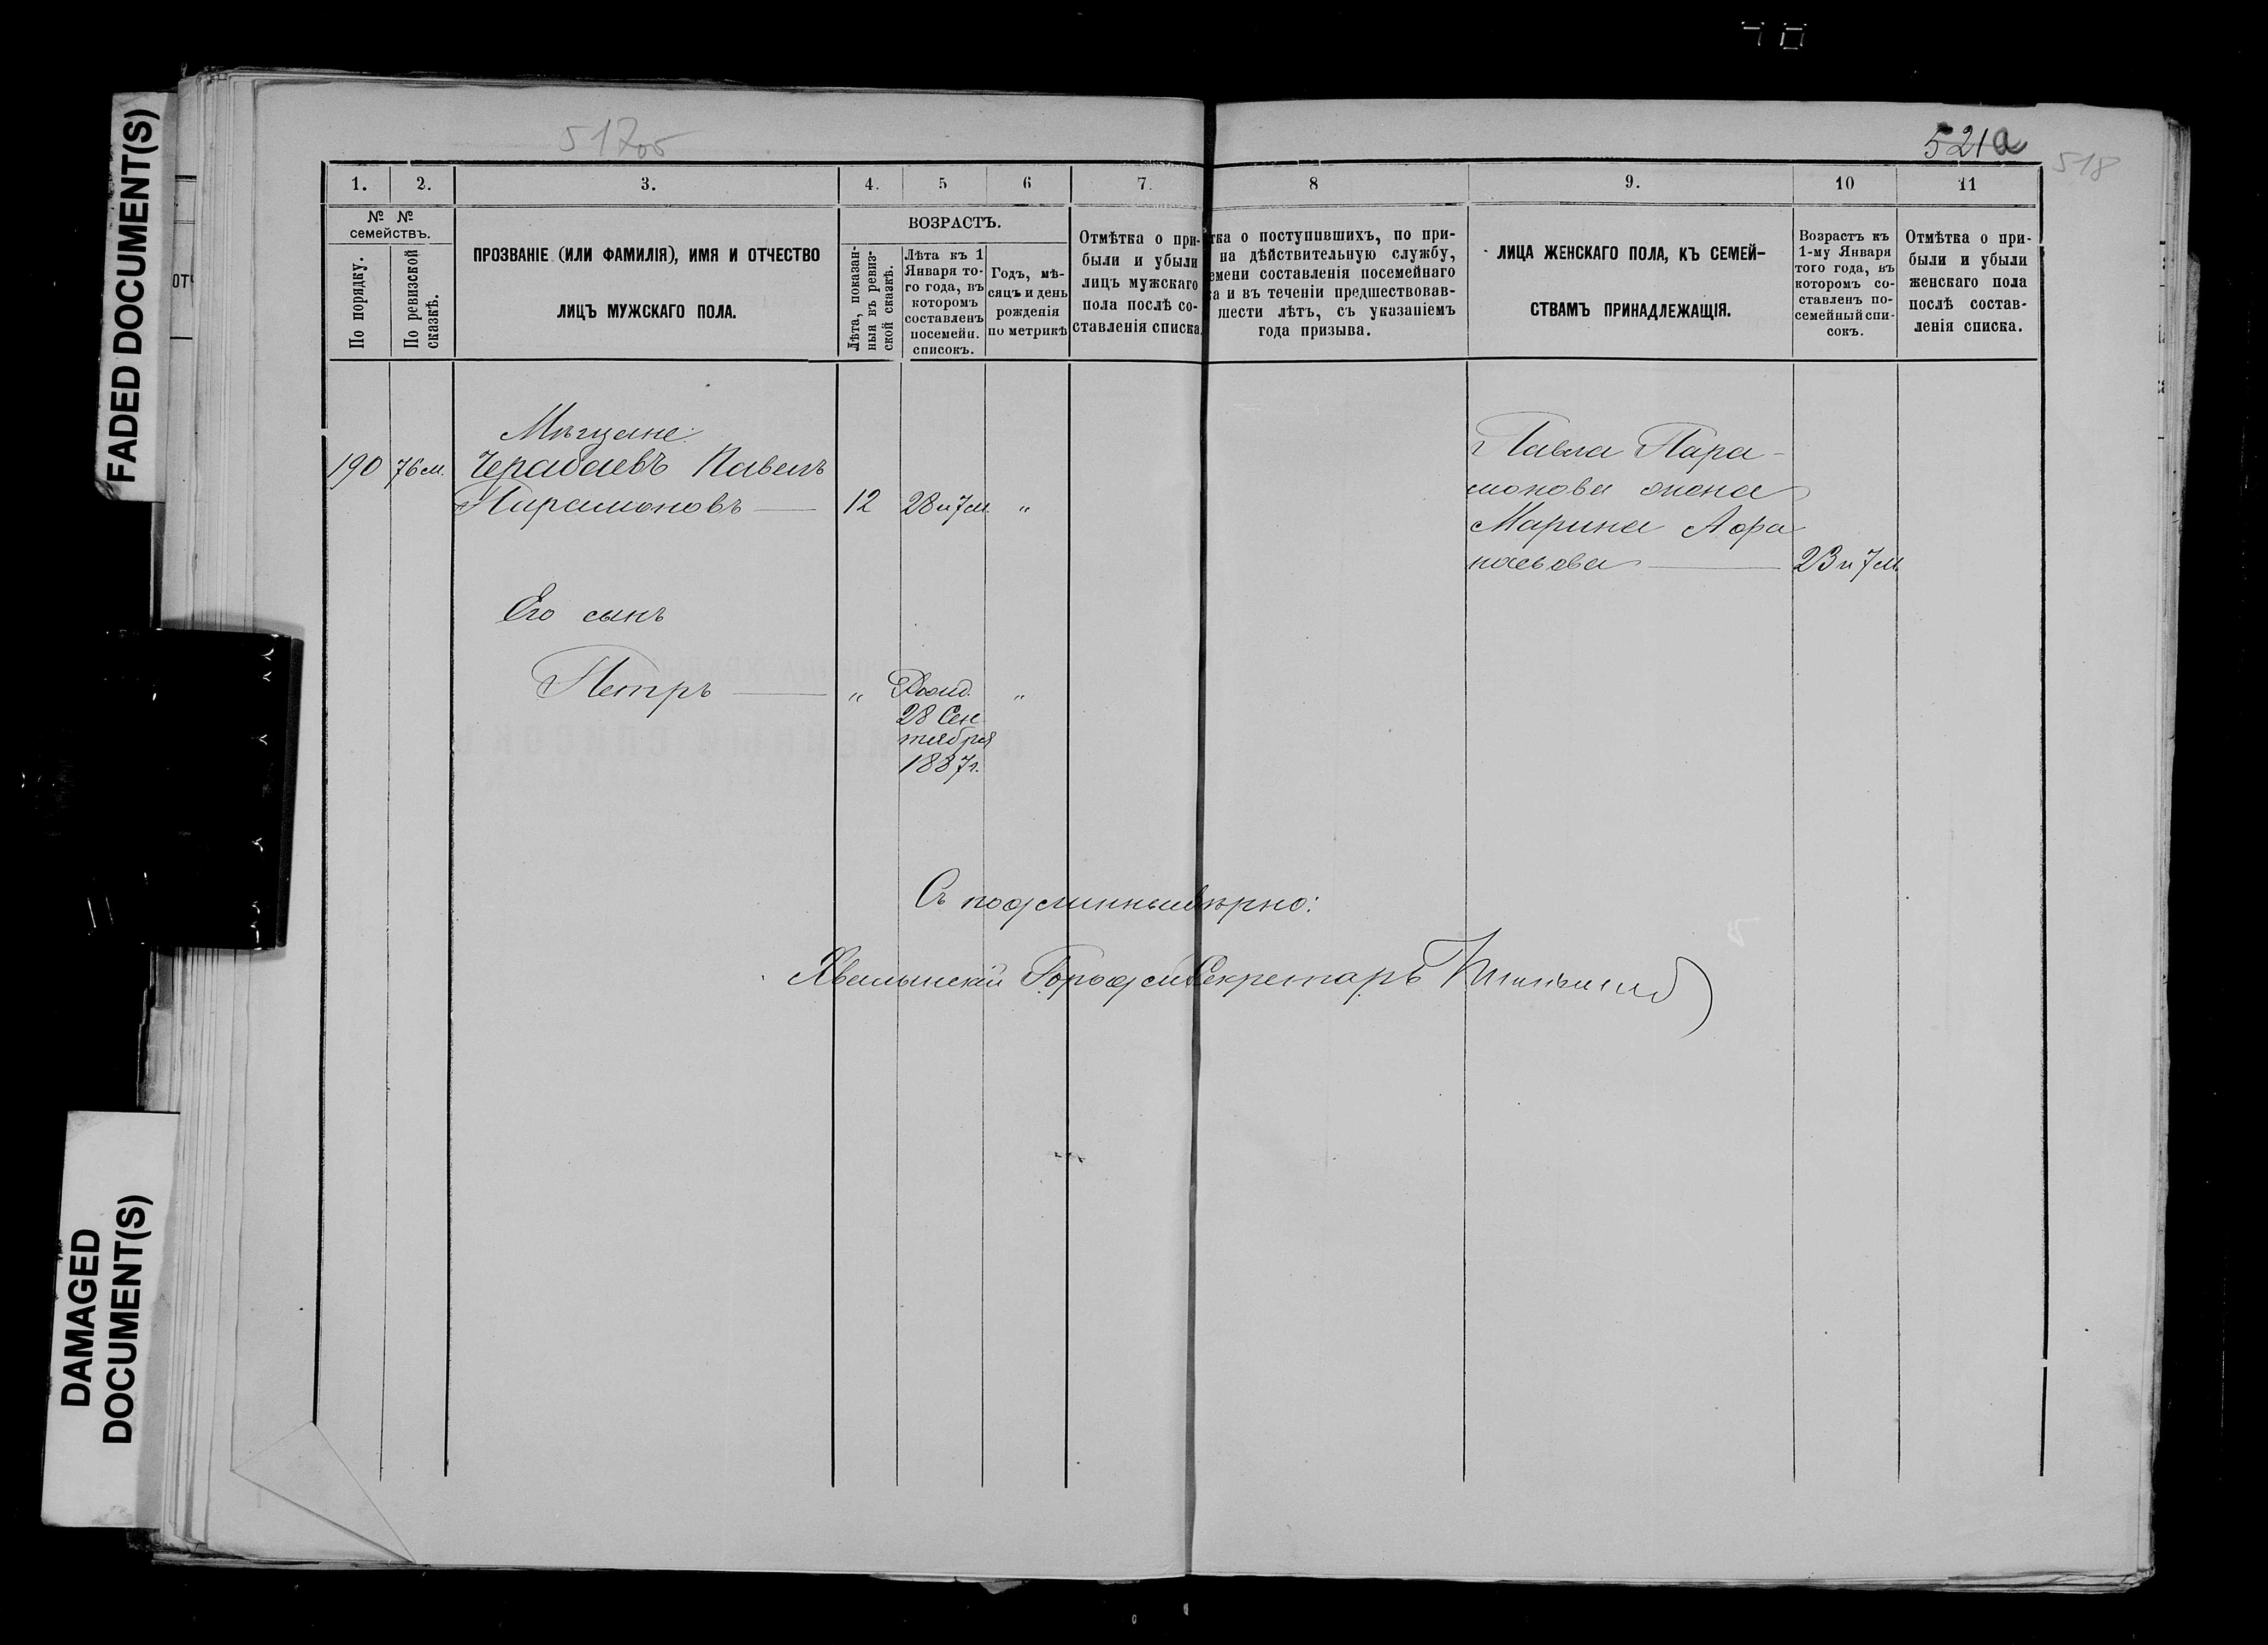 FADED DOCUMENT(S)
DAMAGED
DOCUMENT(S)
517об
521а
518
1.
2.
3.
4.
5
6
7.
8
9.
10
11
№ №
семействъ.
По порядку.
По ревизской
сказкѣ.
ПРОЗВАНІЕ (ИЛИ ФАМИЛІЯ), ИМЯ И ОТЧЕСТВО
ЛИЦЪ МУЖСКАГО ПОЛА.
ВОЗРАСТЪ.
Лѣта, показан-
ныя въ ревиз-
ской сказкѣ.
Лѣта къ 1
Января то-
го года, въ
которомъ
составленъ
посемейн.
списокъ.
Годъ, мѣ-
сяцъ и день
рожденія
по метрикѣ
Отмѣтка о при-
были и убыли
лицъ мужскаго
пола послѣ со-
ставленія списка.
тка о поступившихъ, по при-
на дѣйствительную службу,
емени составленія посемейнаго
ка и въ теченіи предшествовав-
шести лѣтъ, съ указаніемъ
года призыва.
ЛИЦА ЖЕНСКАГО ПОЛА, КЪ СЕМЕЙ-
СТВАМЪ ПРИНАДЛЕЖАЩІЯ.
Возрастъ къ
1-му Января
того года, въ
которомъ со-
ставленъ по-
семейный спи-
сокъ.
Отмѣтка о при-
были и убыли
женскаго пола
послѣ состав-
ленія списка.
Мѣщане:
190 76м. Черабаевъ Павелъ
Парамоновъ — 12 28 и 7м. "
Его сынъ
Петръ — " Рожд. "
28 Сен
тября
1887г.
Павла Пара-
монова жена
Марина Афа
насьева — 23 и 7м.
Съ подлиннымъ вѣрно:
Хвалынскій Городской Секретарь